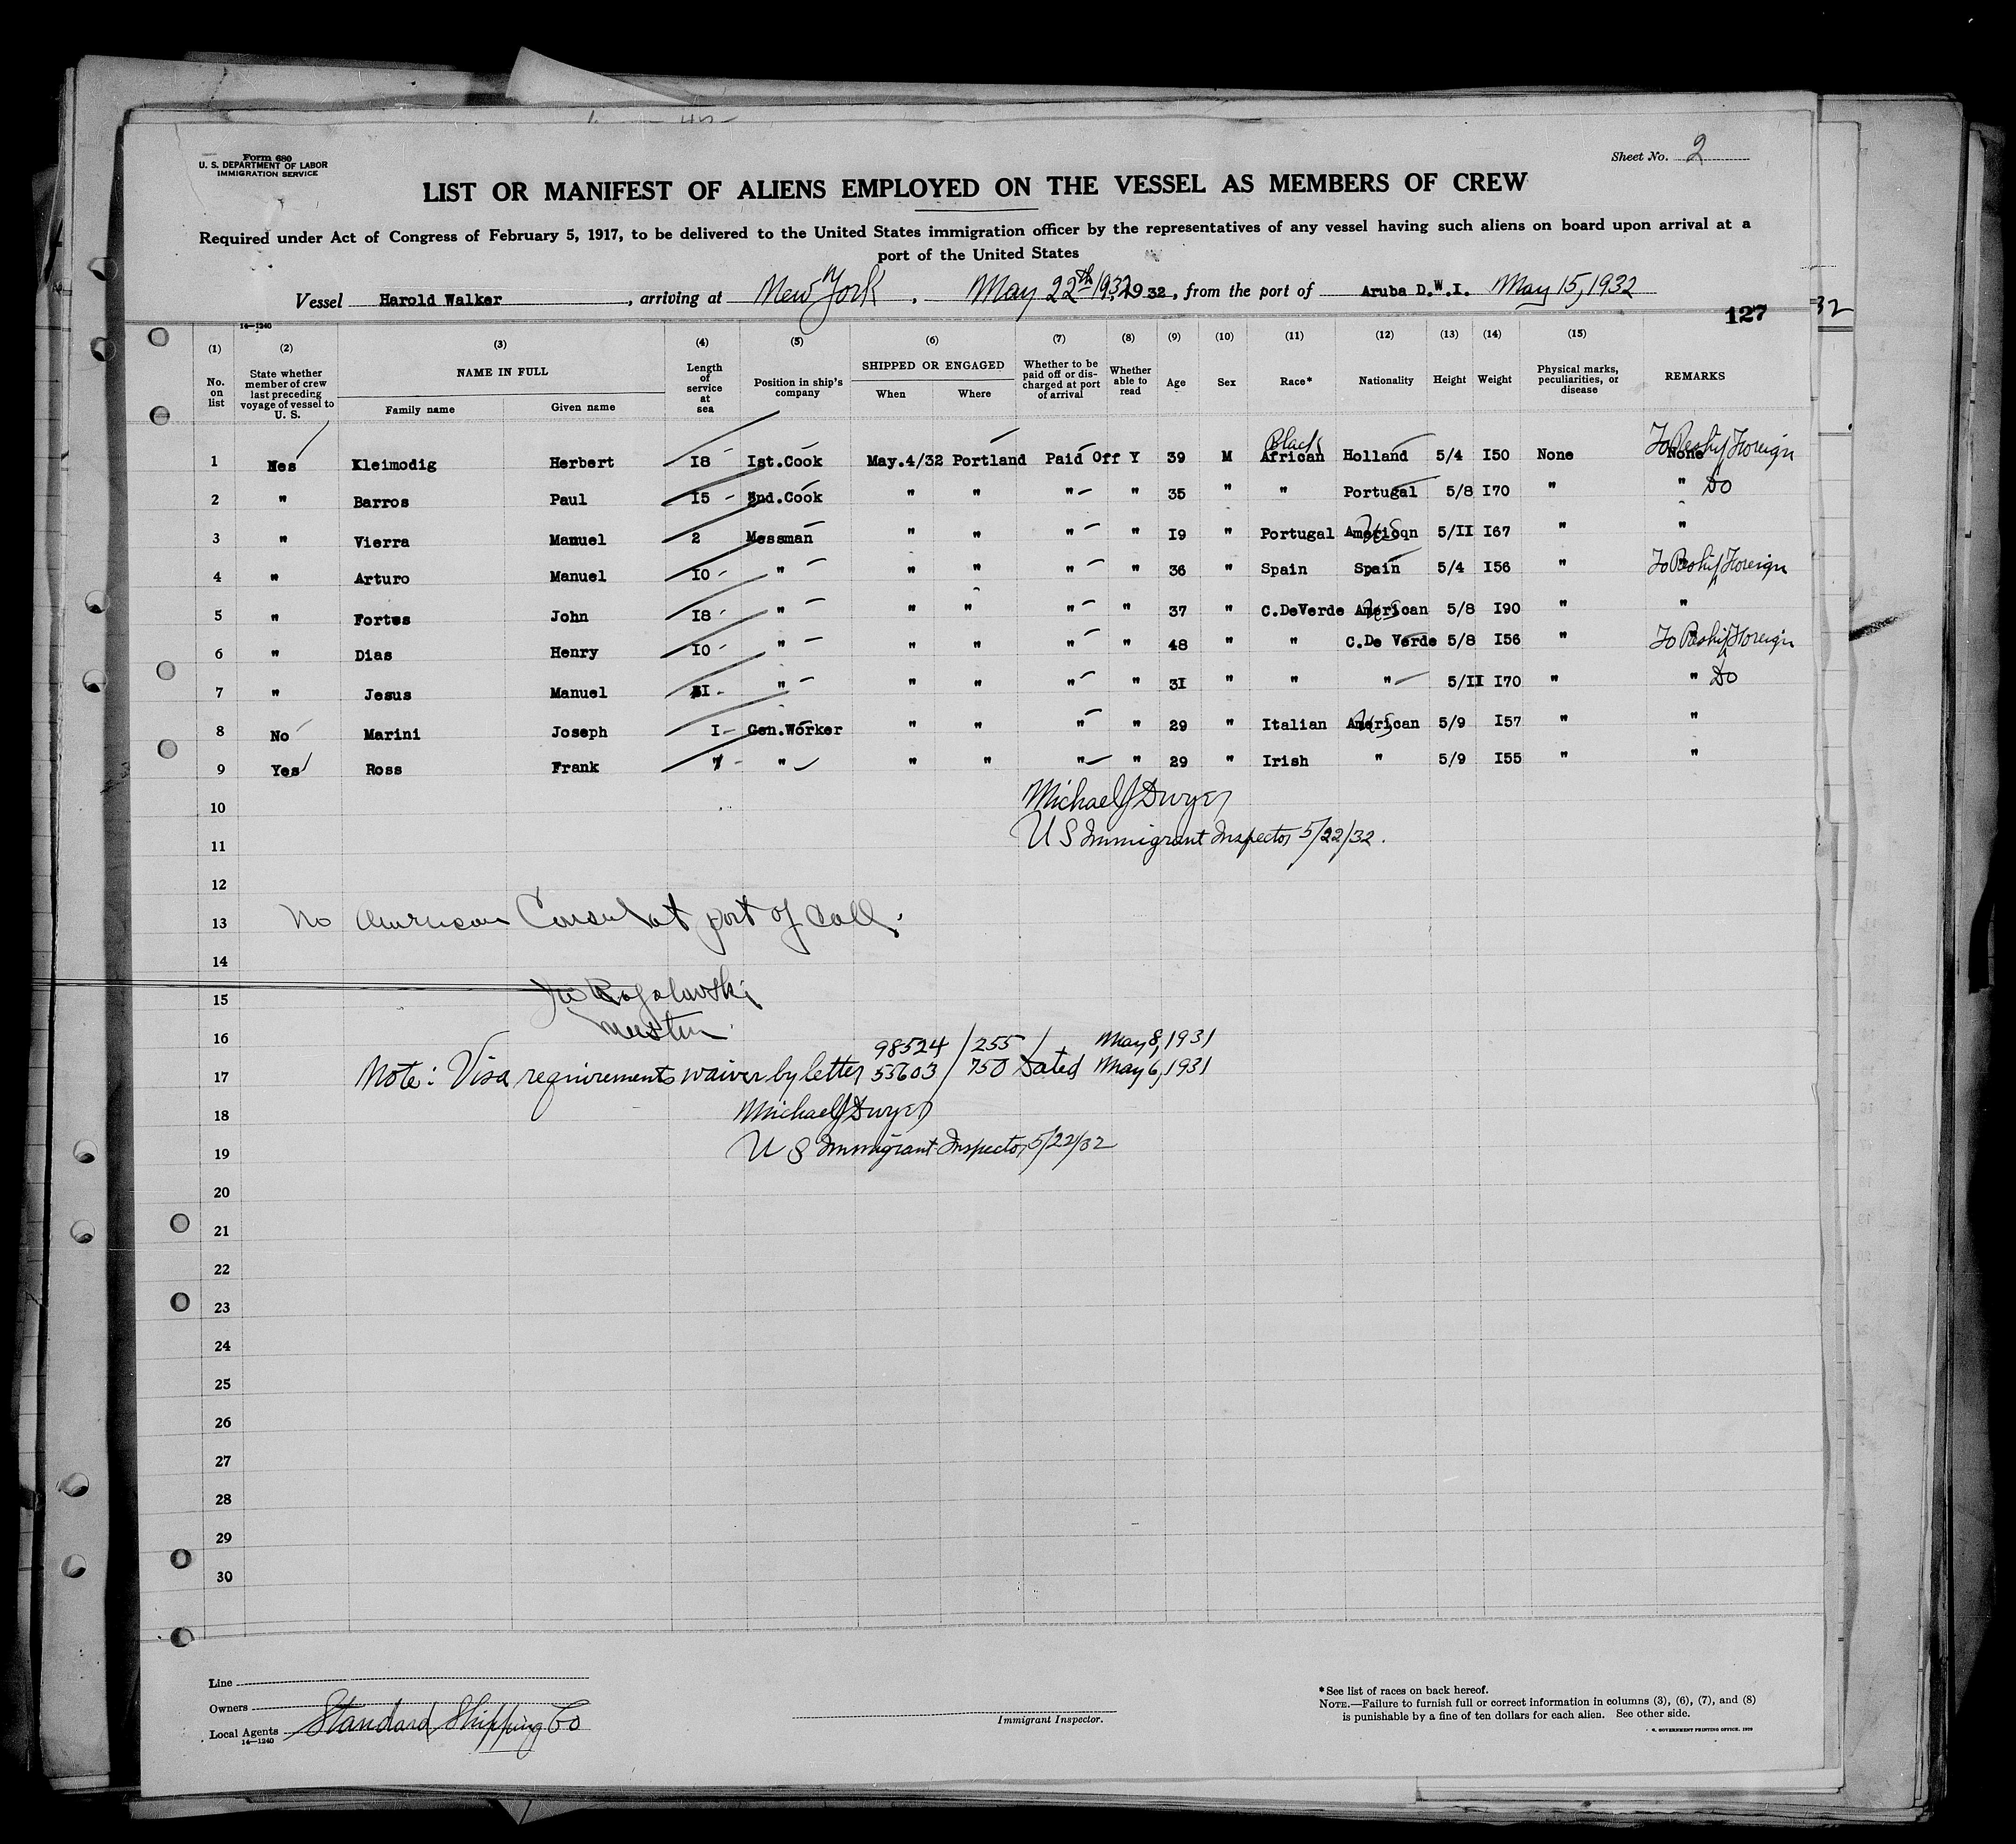 Form 680
U. S. DEPARTMENT OF LABOR
IMMIGRATION SERVICE
Sheet No. 2
LIST OR MANIFEST OF ALIENS EMPLOYED ON THE VESSEL AS MEMBERS OF CREW
Required under Act of Congress of February 5, 1917, to be delivered to the United States immigration officer by the representatives of any vessel having such aliens on board upon arrival at a
port of the United States
Vessel Harold Walker, arriving at New York, May 22th 1932 1932, from the port of Aruba D.W.I. May 15, 1932
127
32
14—1240
(1) (2) (3) (4) (5) (6) (7) (8) (9) (10) (11) (12) (13) (14) (15)
No. on list
State whether member of crew last preceding voyage of vessel to U. S.
NAME IN FULL
Family name
Given name
Length of service at sea
Position in ship's company
SHIPPED OR ENGAGED
When
Where
Whether to be paid off or discharged at port of arrival
Whether able to read
Age
Sex
Race*
Nationality
Height
Weight
Physical marks, peculiarities, or disease
REMARKS
Black To Reship Foreign
1 Yes Kleimodig Herbert 18 Ist.Cook May.4/32 Portland Paid Off Y 39 M African Holland 5/4 I50 None None
2 " Barros Paul I5 2nd.Cook " " " " 35 " " Portugal 5/8 I70 " " Do
3 " Vierra Manuel 2 Messman " " " " I9 " Portugal American US 5/II I67 " "
4 " Arturo Manuel IO " " " " " 36 " Spain Spain 5/4 I56 " " To Reship Foreign
5 " Fortes John I8 " " " " " 37 " C.DeVerde American US 5/8 I90 " "
6 " Dias Henry IO " " " " " 48 " " C.De Verde 5/8 I56 " " To Reship Foreign
7 " Jesus Manuel I " " " " " 3I " " " 5/II I70 " " Do
8 No Marini Joseph I Gen.Worker " " " " 29 " Italian American US 5/9 I57 " "
9 Yes Ross Frank 7 " " " " " 29 " Irish " 5/9 I55 " "
10 Michael J Dwyer
11 U S Immigrant Inspector 5/22/32.
12
13 No American Consul at port of call.
14
15
16 Master
98524 / 255 / May 8, 1931
17 Note: Visa requirements waiver by letter 55603 / 750 Dated May 6, 1931
18 Michael J Dwyer
19 U S Immigrant Inspector 5/22/32
20
21
22
23
24
25
26
27
28
29
30
Line
Owners
Local Agents Standard Shipping Co
14—1240
Immigrant Inspector.
*See list of races on back hereof.
NOTE.—Failure to furnish full or correct information in columns (3), (6), (7), and (8)
is punishable by a fine of ten dollars for each alien. See other side.
GOVERNMENT PRINTING OFFICE. 1929